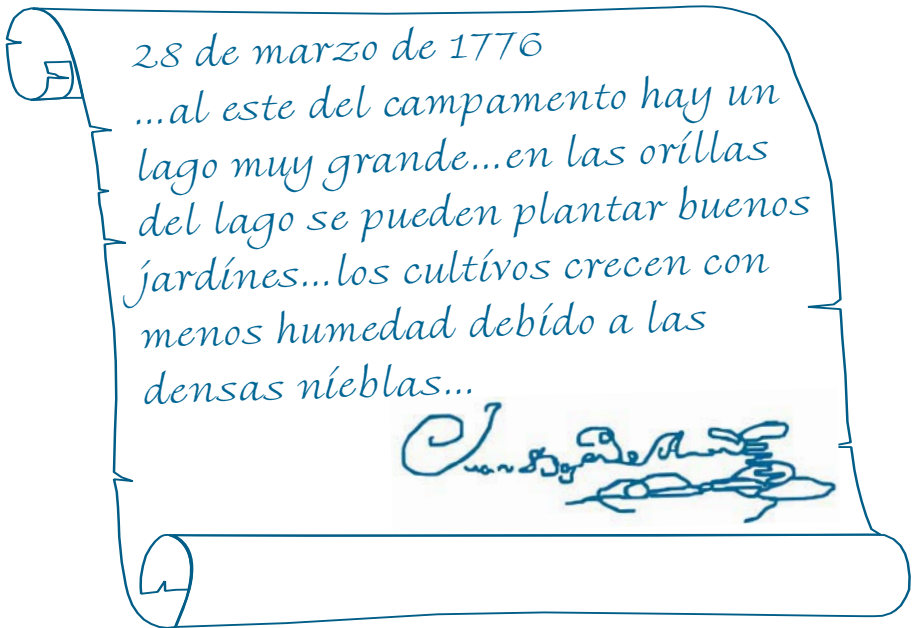 28 de marzo de 1776
...al este del campamento hay un
lago muy grande...en las oríllas
del lago se pueden plantar buenos
jardínes...los cultívos crecen con
menos humedad debído a las
densas níeblas...
Juan